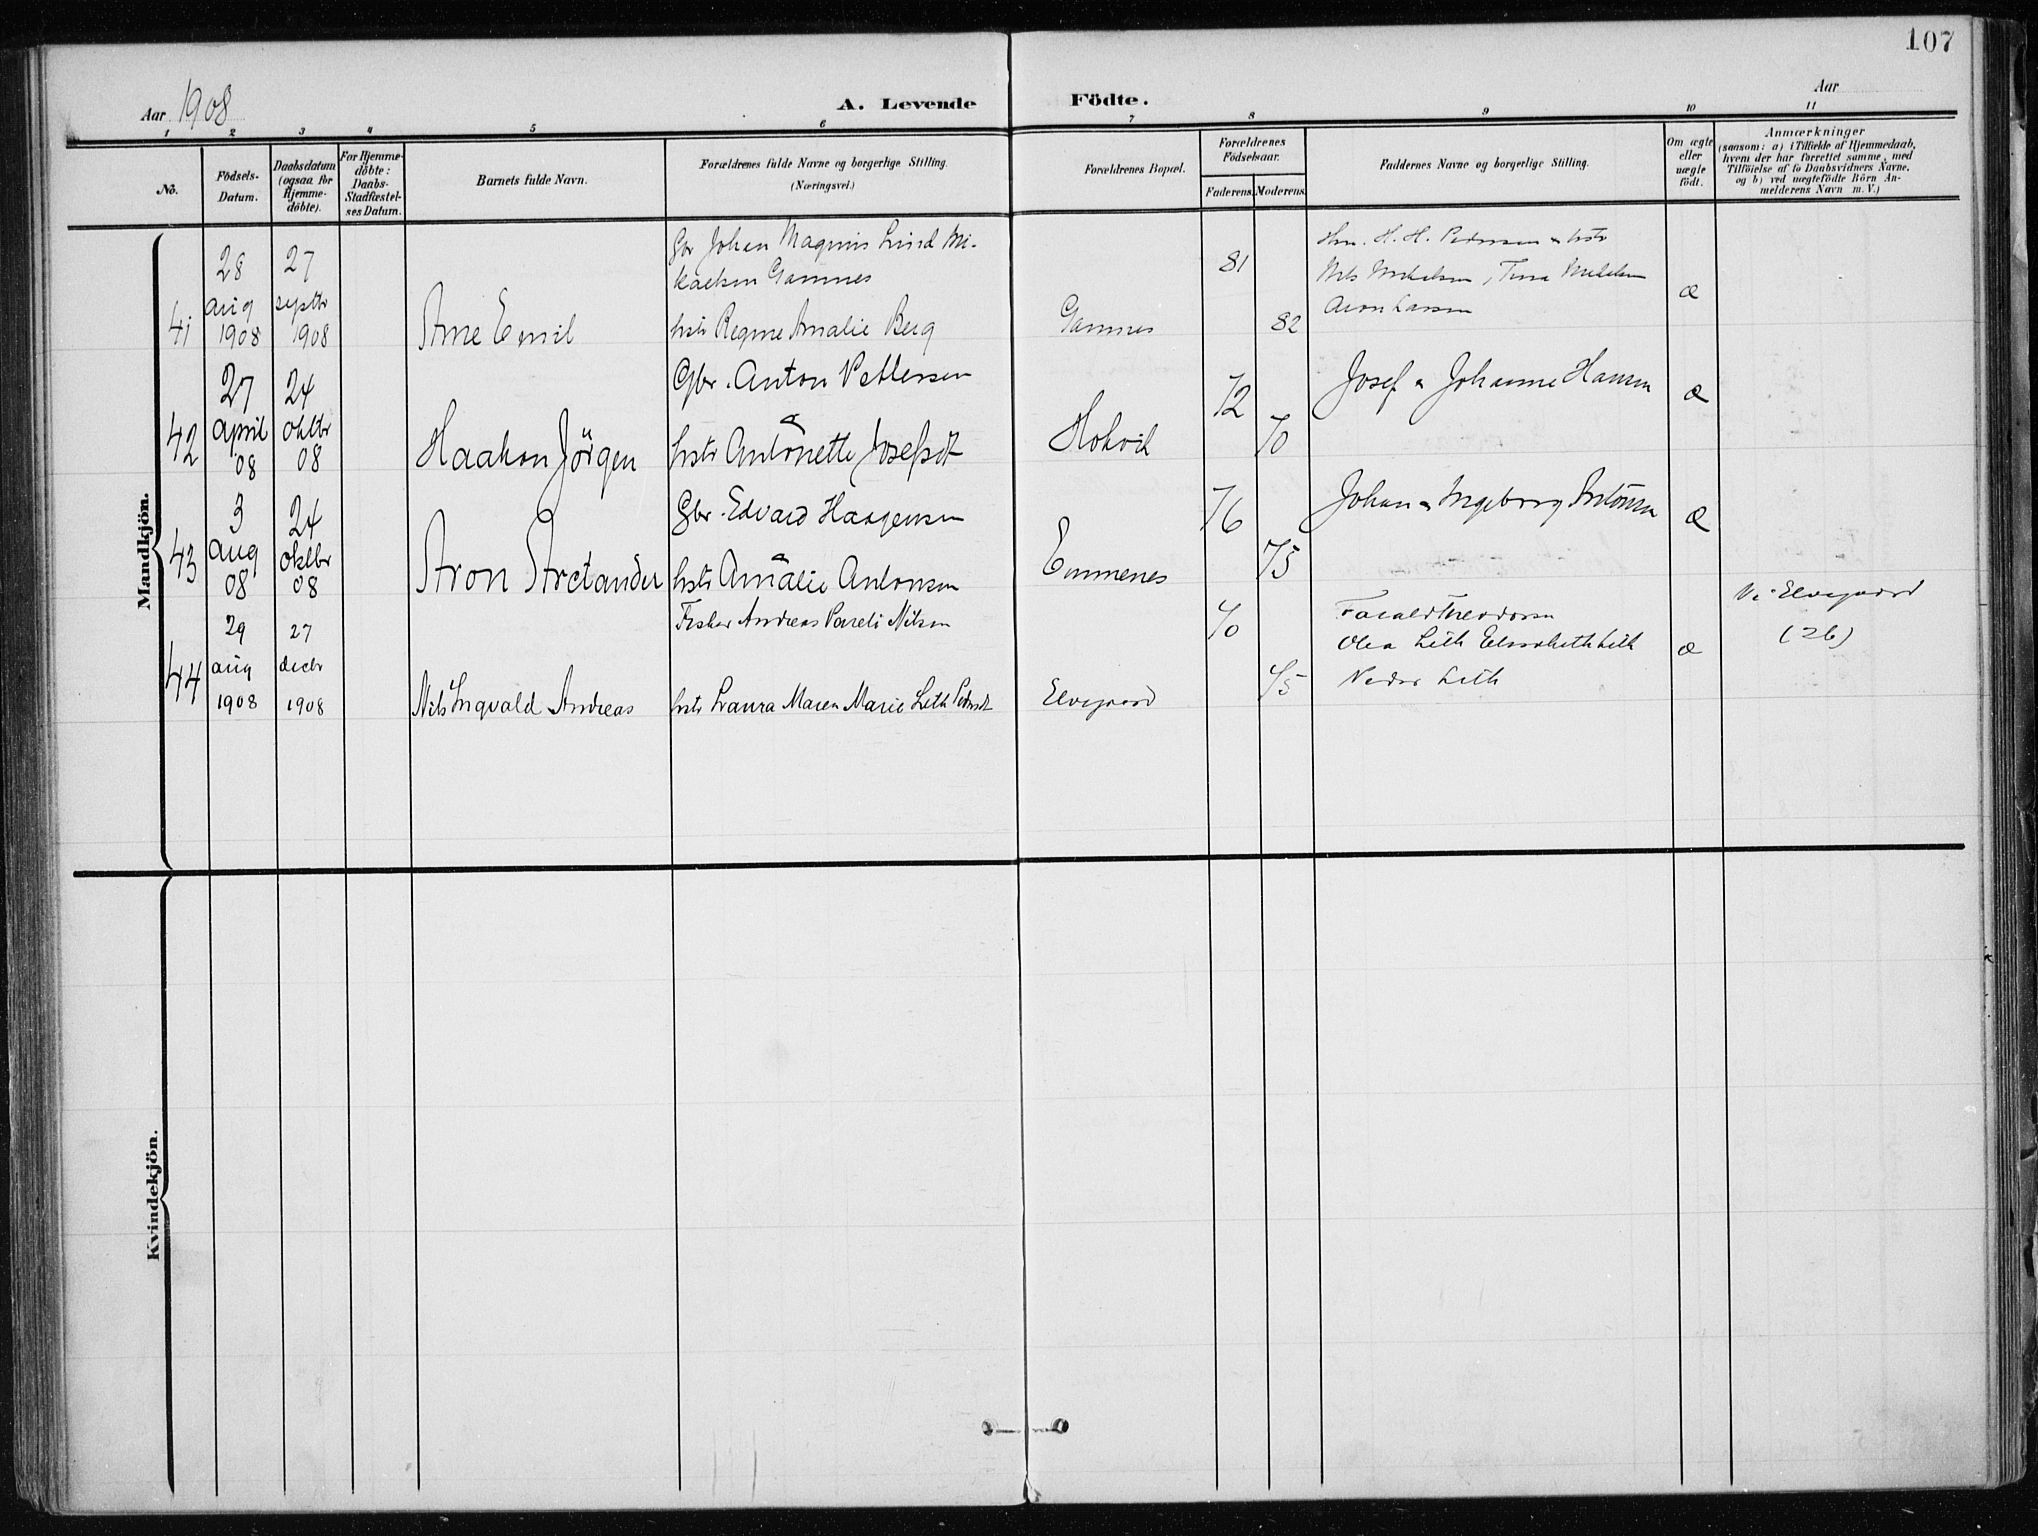 107
Aar 1908
A. Levende Födte.
Aar
1 2 3 4 5 6 7 8 9 10 11
No.
Födsels-Datum.
Daabsdatum (ogsaa for Hjemme-döbte).
For Hjemme-döbte: Daabs-Stadfæstel-ses Datum.
Barnets fulde Navn.
Forældrenes fulde Navne og borgerlige Stilling.
(Næringsvei.)
Forældrenes Bopæl.
Forældrenes Födselsaar.
Faderens. Moderens.
Faddernes Navne og borgerlige Stilling.
Om ægte eller uægte födt.
Anmærkninger
(saasom: a) i Tilfælde af Hjemmedaab,
hvem der har forrettet samme, med
Tilföielse af to Daabsvidners Navne,
og b) ved uægtefödte Börn An-
melderens Navn m. V.)
Mandkjön.
41
28 aug 1908
27 septbr 1908
Arne Emil
Gbr Johan Magnus Lind Mi-
kaelsen Gamnes
hstr Regine Amalie Berg
Gamnes
81
82
H. H. Pedersen
Aron Larsen
æ
42
27 april 08
24 oktbr 08
Haakon Jörgen
Gbr. Anton Pettersen
hstr Antonette Josefsdt
Hokvik
72
70
Josef & Johanne Hansen
æ
43
3 aug 08
24 oktbr 08
Aron Arctander
Gbr. Edvard Haagensen
hstr Amalie Antonsen
Emmenes
76
75
Johan & Ingeborg Antonsen
æ
44
29 aug 1908
27 decbr 1908
Nils Ingvald Andreas
Fisker Andreas Pareli Nilsen
hstr Laura Maren Marie Leth Pedersdt
Elvegaard
70
75
Olea Leth Elisabeth Leth
Peder Leth
æ
Elvegaard
(26)
Kvindekjön.